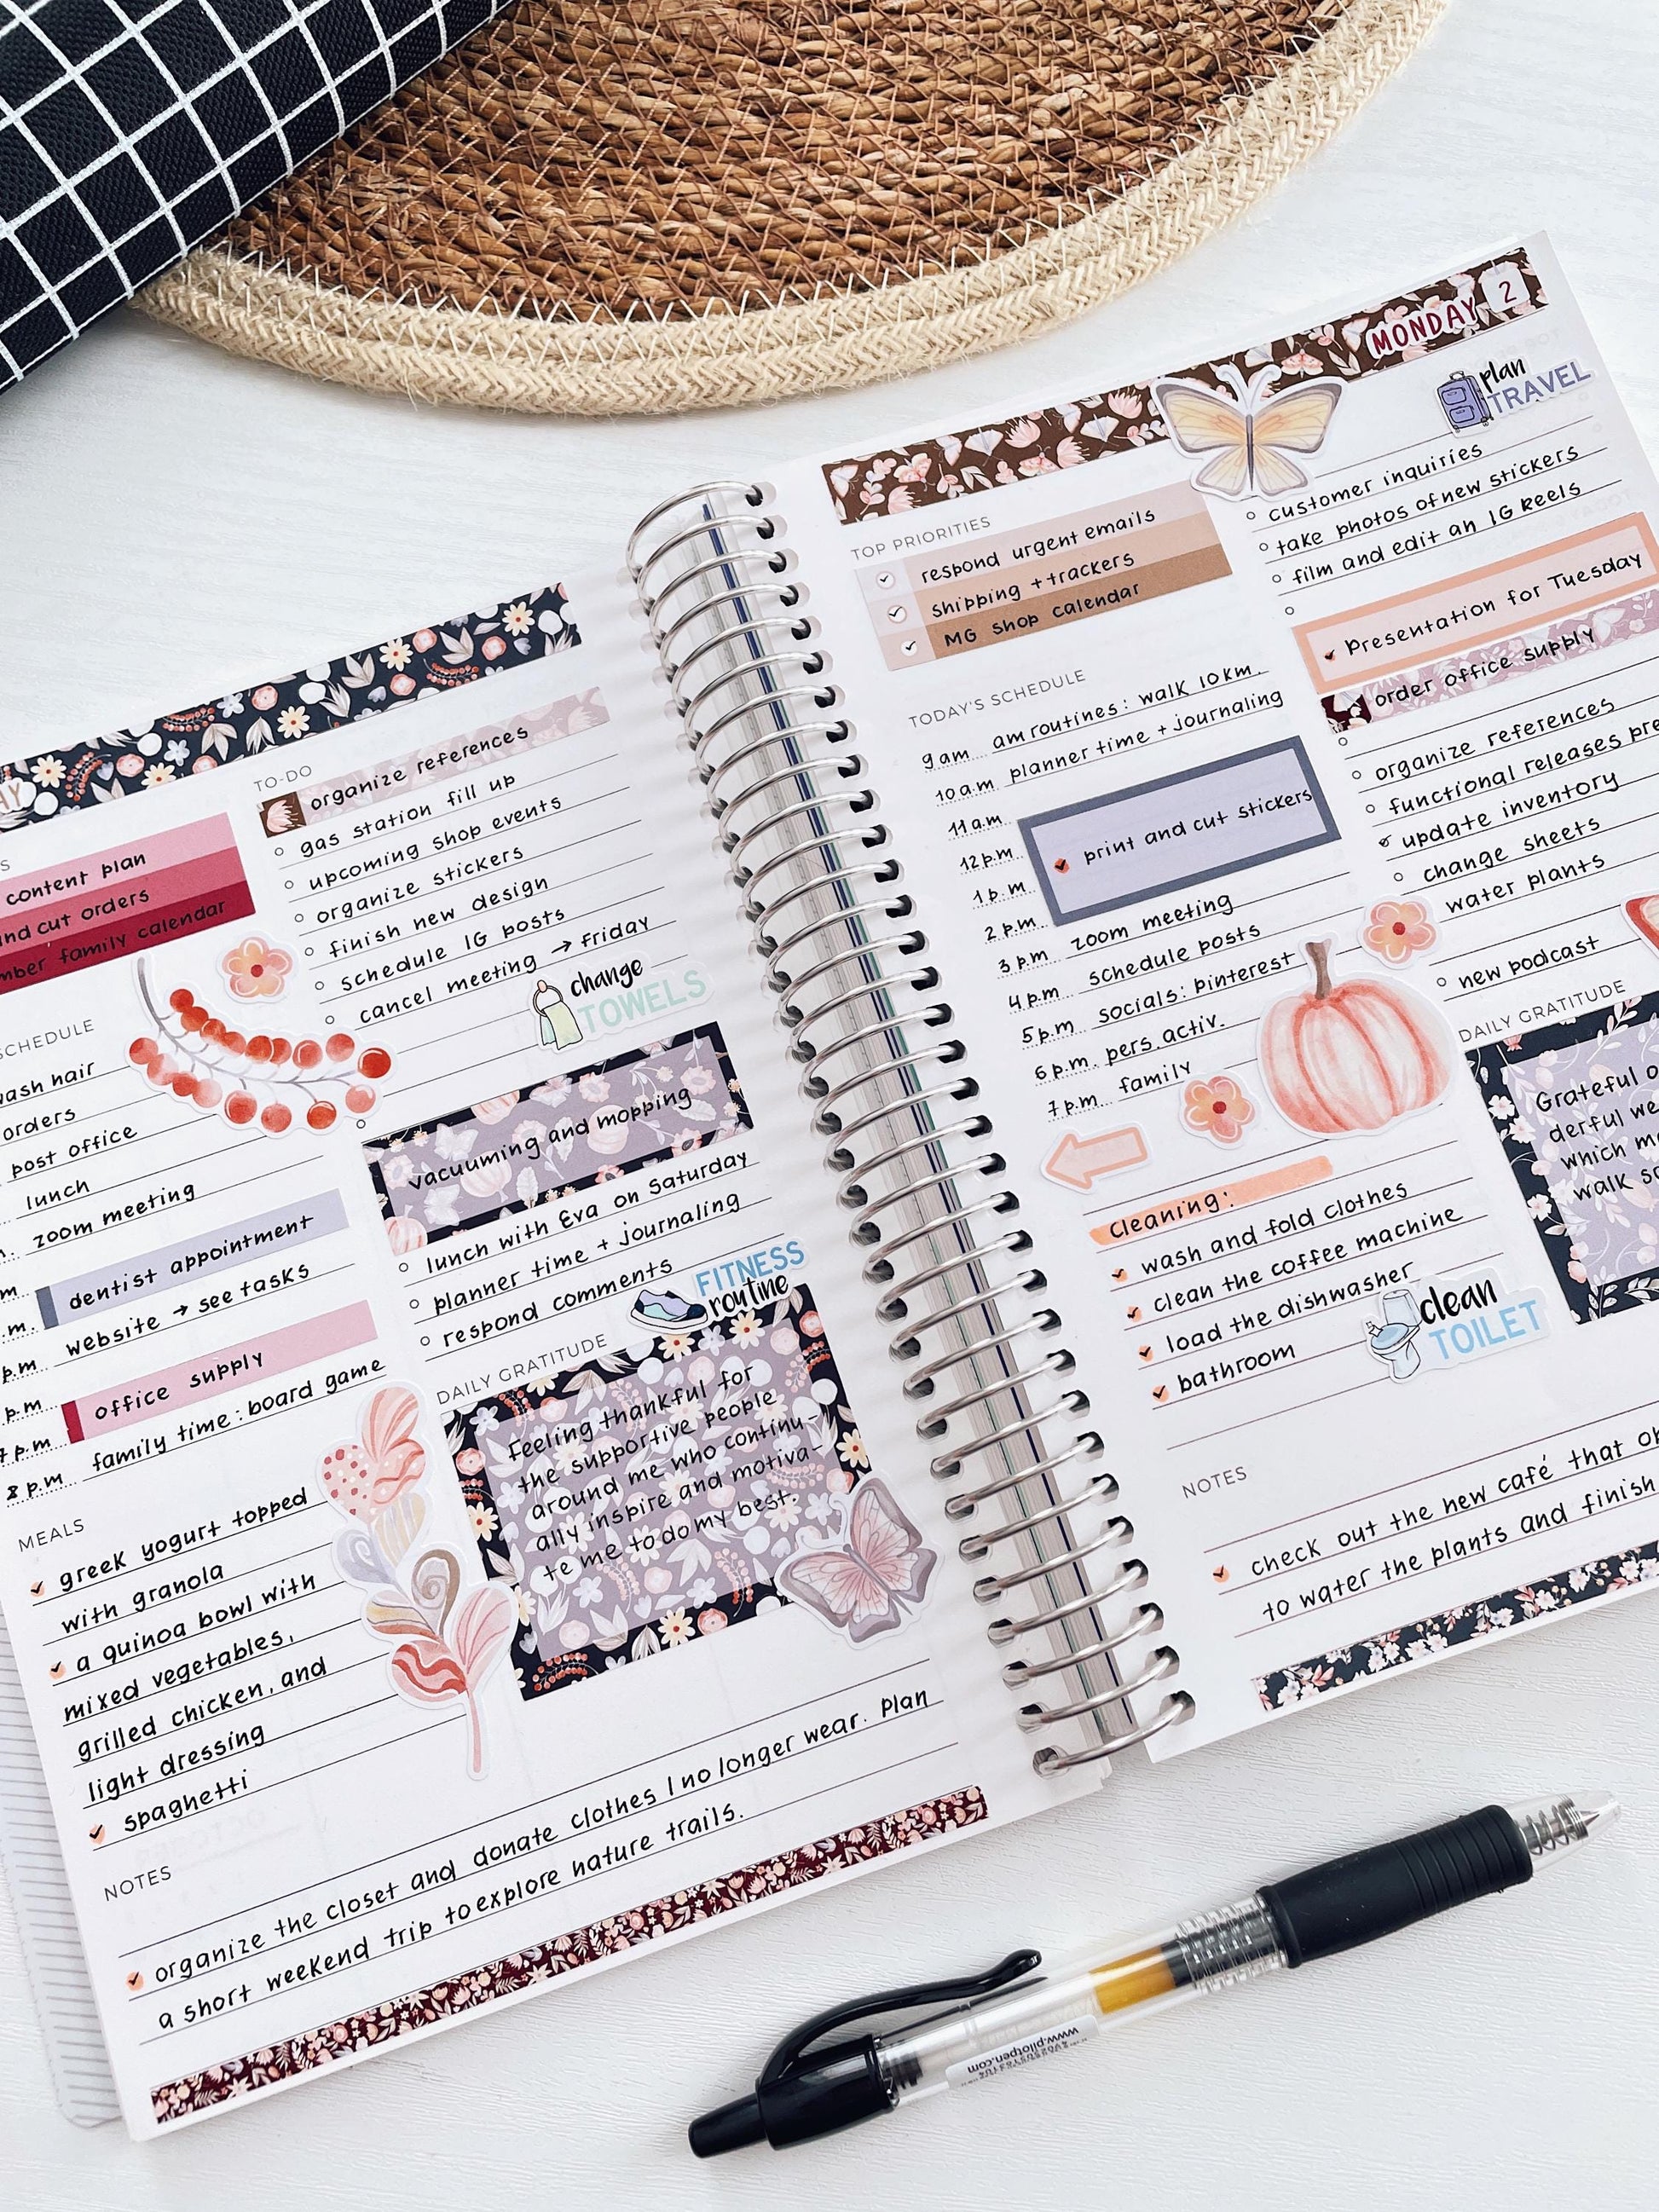 AY
content plan
and cut orders
family calendar
SCHEDULE
wash hair
orders
post office
lunch
zoom meeting
dentist appointment
website → see tasks
p.m
office supply
p.m
8 p.m family time: board game
MEALS
greek yogurt topped
with granola
a quinoa bowl with
mixed vegetables,
grilled chicken, and
light dressing
spaghetti
TO-DO
organize references
gas station fill up
upcoming shop events
organize stickers
finish new design
schedule IG posts
cancel meeting → Friday
change
TOWELS
vacuuming and mopping
lunch with Eva on Saturday
planner time + journaling
respond comments
FITNESS
routine
DAILY GRATITUDE
Feeling thankful for
the supportive people
around me who continu-
ally inspire and motiva-
te me to do my best.
NOTES
organize the closet and donate clothes I no longer wear. Plan
a short weekend trip to explore nature trails.
MONDAY 2
TOP PRIORITIES
respond urgent emails
shipping + trackers
MG shop calendar
TODAY'S SCHEDULE
9 am am routines: walk 10 km.
10 a.m planner time + journaling
11 a.m
12 p.m print and cut stickers
1 p.m
2 p.m zoom meeting
3 p.m schedule posts
4 p.m socials: pinterest
5 p.m pers. activ.
6 p.m. family
7 p.m
Cleaning:
wash and fold clothes
clean the coffee machine
load the dishwasher
bathroom
clean
TOILET
plan
TRAVEL
customer inquiries
take photos of new stickers
film and edit an IG Reels
Presentation for Tuesday
order office supply
organize references
functional releases pre
update inventory
change sheets
water plants
new podcast
DAILY GRATITUDE
Grateful
derful we
which
walk
NOTES
check out the new café that
to water the plants and finish
www.pilotpen.com